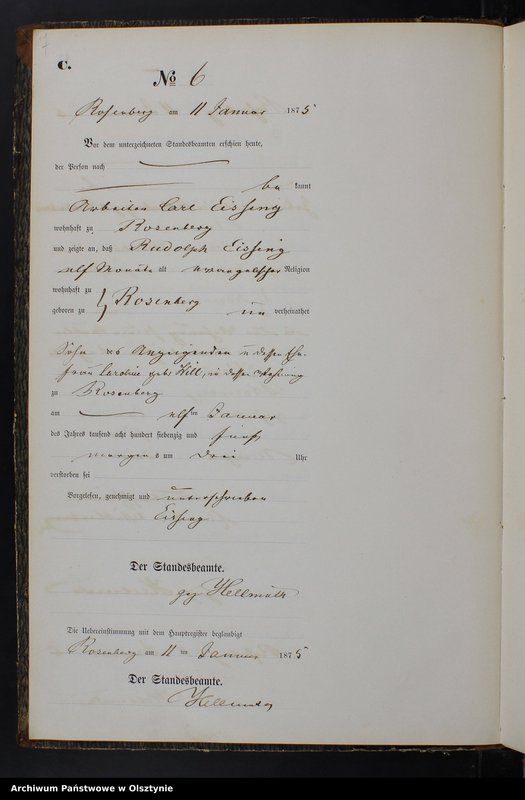 C.
No 6
Rosenberg am 11 Januar 1875
Vor dem unterzeichneten Standesbeamten erschien heute,
der Person nach
be kannt
Arbeiter Carl Eissing
wohnhaft zu Rosenberg
und zeigte an, daß Rudolph Eissing
elf Monate alt evangelischer Religion
wohnhaft zu
geboren zu } Rosenberg un verheirathet
Sohn des Anzeigenden u dessen Ehe-
frau Caroline geb Will, in dessen Wohnung
zu Rosenberg
am elf ten Januar
des Jahres tausend acht hundert siebenzig und fünf
morgens um drei Uhr
verstorben sei
Vorgelesen, genehmigt und unterschrieben
Eissing
Der Standesbeamte.
gez Hellmuth
Die Uebereinstimmung mit dem Hauptregister beglaubigt
Rosenberg am 11 ten Januar 1875
Der Standesbeamte.
Hellmuth
Archiwum Państwowe w Olsztynie